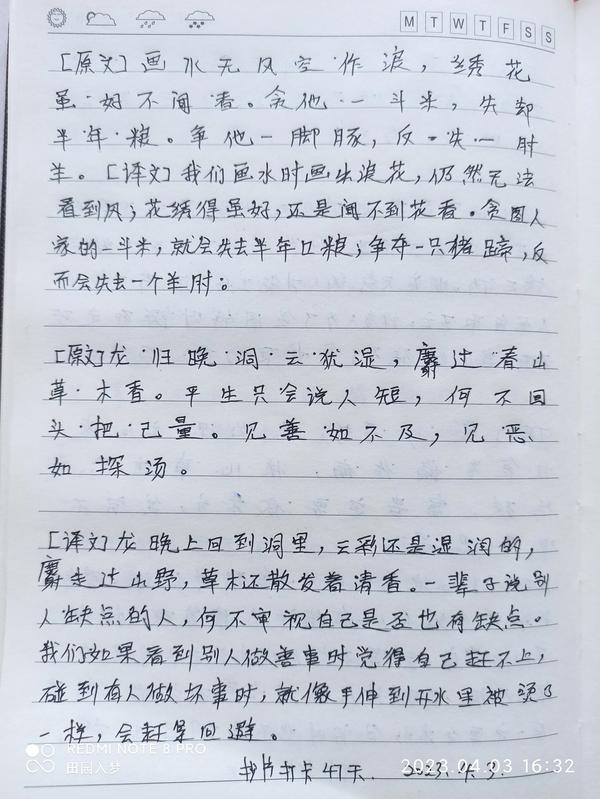 M T W T F S S
[原文] 画水无风空作浪，绣花
虽好不闻香。贪他一斗米，失却
半年粮。争他一脚豚，反失一肘
羊。[译文]我们画水时画出浪花，仍然无法
看到风；花绣得虽好，还是闻不到花香。贪图人
家的一斗米，就会失去半年口粮；争夺一只猪蹄，反
而会失去一个羊肘。
[原文]龙归晚洞云犹湿，麝过春山
草木香。平生只会说人短，何不回
头把己量。见善如不及，见恶
如探汤。
[译文]龙晚上回到洞里，云彩还是湿润的，
麝走过山野，草木还散发着清香。一辈子说别
人缺点的人，何不审视自己是否也有缺点。
我们如果看到别人做善事时觉得自己赶不上，
碰到有人做坏事时，就像手伸到开水里被烫了
一样，会赶紧回避。
抄书打卡47天. 2023.4.3.
REDMI NOTE 8 PRO
田园入梦
2023.04.03 16:32